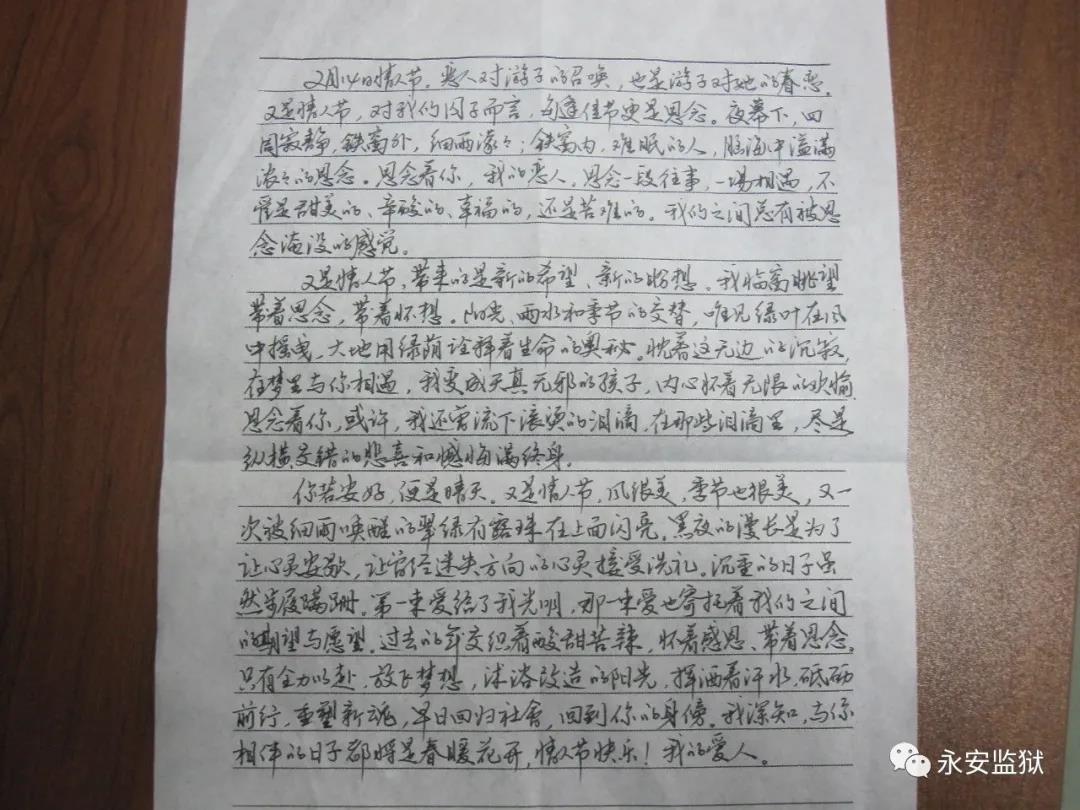 2月14日情人节。恋人对游子的召唤，也是游子对她的眷恋。
又是情人节，对我们囚子而言，每逢佳节更是思念。夜幕下，四
周寂静，铁窗外，细雨濛々；铁窗内，难眠的人，脑海中溢满
浓々的思念。思念着你，我的恋人。思念一段往事，一場相遇，不
管是甜美的、辛酸的、幸福的，还是苦难的。我们之间总有被思
念淹没的感觉。
又是情人节，带来的是新的希望、新的盼想。我临窗眺望
带着思念，带着怀想。阳光、雨水和季节的交替，唯见绿叶在风
中摇曳，大地用绿荫诠释着生命的奥秘。枕着这无边的沉寂，
在梦里与你相遇，我变成天真无邪的孩子，内心怀着无限的欢愉
思念着你，或许，我还曾流下滚烫的泪滴，在那些泪滴里，尽是
纵横交错的悲喜和憾悔满终身。
你若安好，便是晴天。又是情人节，风很美，季节也很美，又一
次被细雨唤醒的翠绿有露珠在上面闪亮。黑夜的漫长是为了
让心灵安歇，让曾经迷失方向的心灵接受洗礼。沉重的日子虽
然步履蹒跚。第一束爱给了我光明，那一束爱也寄托着我们之间
的期望与愿望。过去的年交织着酸甜苦辣，怀着感恩、带着思念。
只有全力以赴，放飞梦想，沐浴改造的阳光，挥洒着汗水，砥砺
前行，重塑新魂，早日回归社會，回到你的身傍。我深知，与你
相伴的日子都将是春暖花开，情人节快乐！我的爱人。
永安监狱